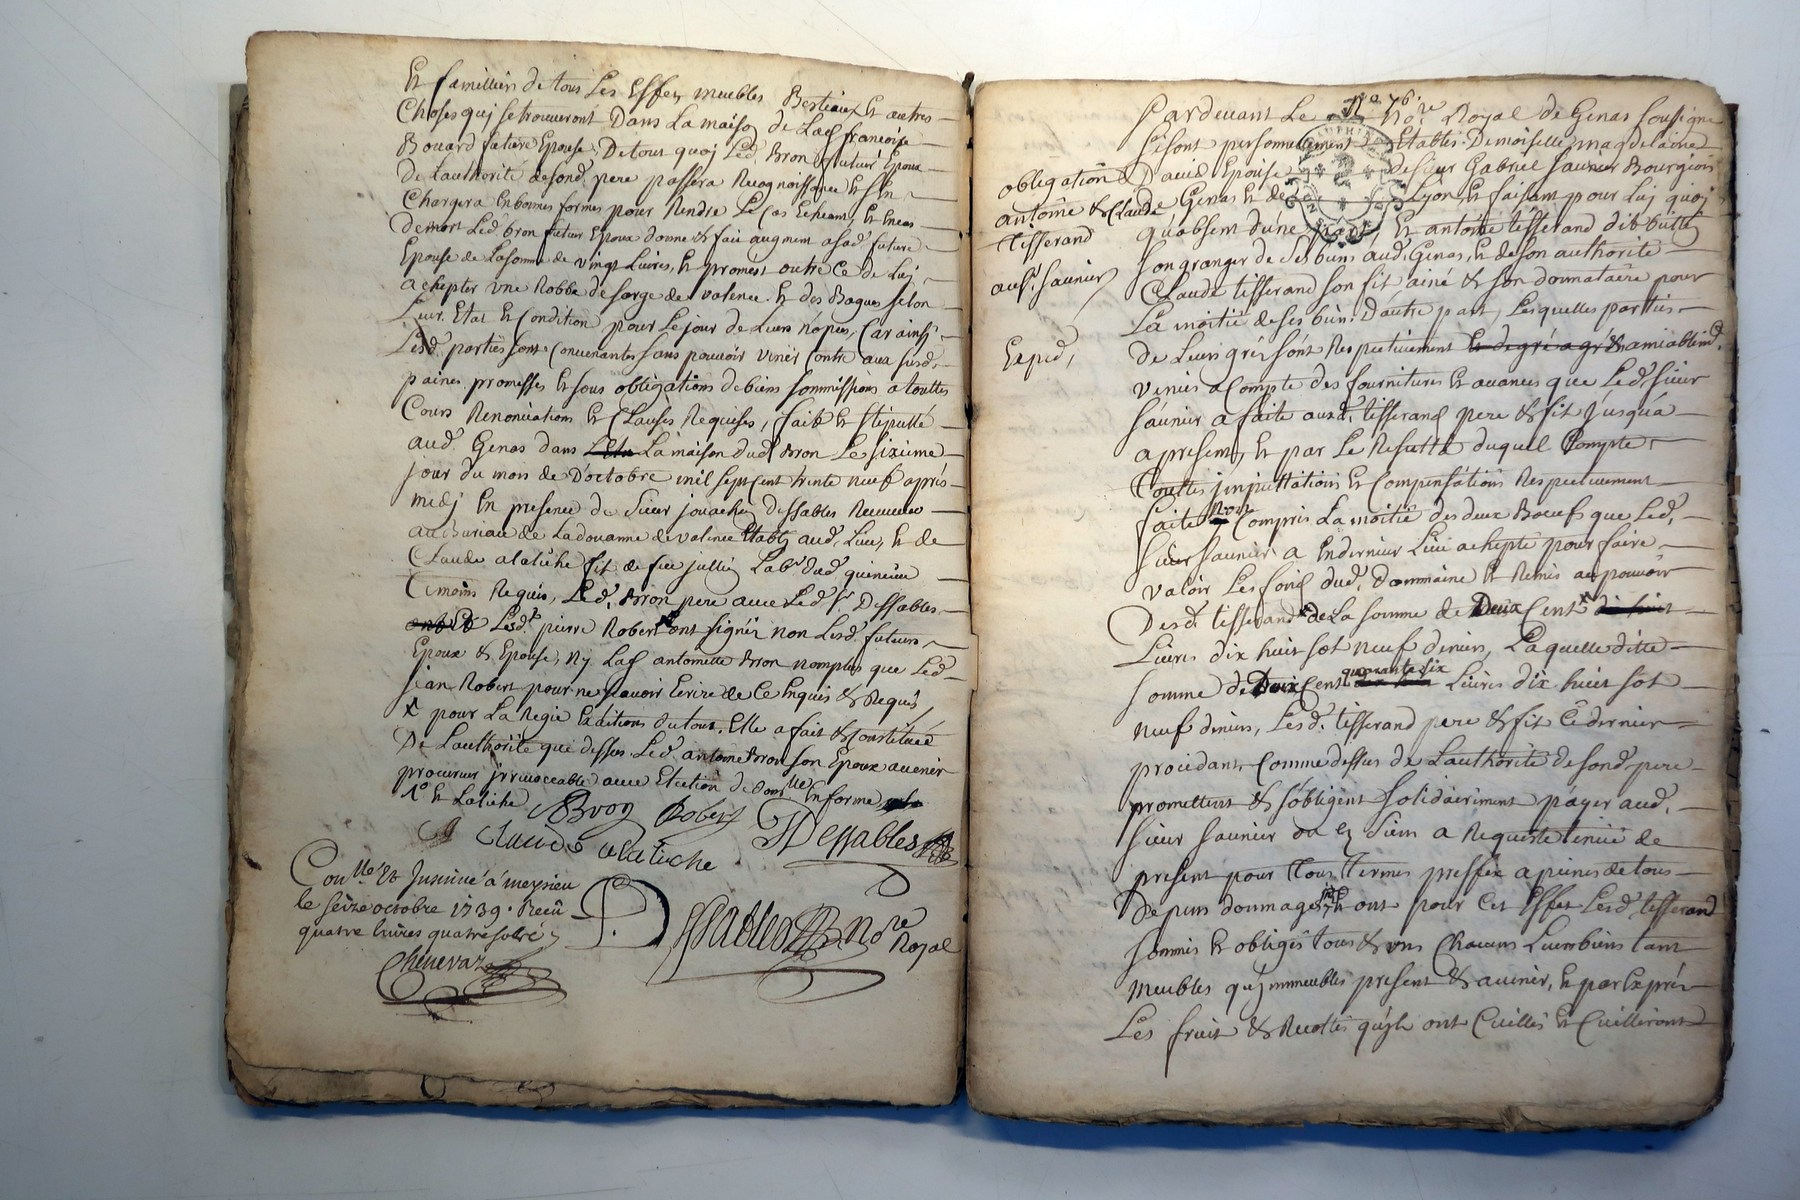 Et familliers de tous Les Effets meubles Bestiaux Et autres
Choses quj se trouveront Dans La maison de Lad francoise
Bouard future Epouse. De tout quoj Led. Bron futur Epoux
de L'authorité desond. pere passera Recognoissance Et s'En
Chargera En bonnes formes pour Rendre Le Cas Echeant, Et En cas
de mort Led. Bron futur Epoux donne & fait augment a sad. future
Epouse de La somme de vingt Livres, Et promest outre Ce de Luj
achepter vne Robbe de sarge de valence Et des Bagues selon
Leur Etat Et Condition pour Le jour de Leurs nopces, Car ainsj
Lesd. parties sont Convenantes sans pouvoir venir Contre aux susd.
paines promesses Et sous obligations de biens sommissions a touttes
Cours Renonciations Et Clauses Requises, fait Et stipullé
aud. Genas dans La maison dud. Bron Le sixieme
jour du mois de D'octobre mil sept Cent trente neuf après
midj En presence de sieur joüachin dessables Receveur
au Bureau de La doüanne de valence Etablj aud. Lieu, Et de
Claude alatiche fils de feu jullin Lab.r dud.
Temoins Requis, Led. Bron pere avec Led. s.r Dessables
Lesd. pierre Robert ont signéz non Lesd. futurs
Epoux & Epouse, nj Lad antoinette Bron non plus que Led.
jean Robert pour ne sçavoir Ecrire de Ce Enquis & Requis
pour La Regie Exactions du tout, Elle a fait & Constitué
De L'authorité que dessus Led. antoine Bron son Epoux avenir
procureur jrrevocable avec Election de dom.lle En forme
Et Latiche Bron Robert JDessables
Claude alatiche
Con.lle Et Jnsinué a meysieu
le seize octobre 1739. Receu
quatre livres quatre sols
Chenevaz
Dessables no.re
Royal
N.o 76.
Pardevant Le No.re Royal de Genas soussigné
se sont personnellement Etablis Demoiselle magdelaine
David Epouse de sieur Gabriel saunier Bourgeois
de Lyon Et faisant pour Luj quoj
qu'absent d'une part, Et antoine tisserand dit
son granger de ses biens aud. Genas, Et de son authorité
Claude tisserand son fils ainé & son donnataire pour
La moitié de ses biens D'autre part, Lesquelles parties
de Leurs grez sont Respectivement Et de gré a gré & amiablem.t
venues a Compte des fournitures Et avances que Led. sieur
saunier a faite auxd. tisserand pere & fils jusqu'a
apresent, Et par Le Resulta duquel Compte
Touttes jmputtations Et Compensations Respectivement
faite non Compris La moitié des deux Bœufs que Led.
sieur saunier a En dernier Lieu achepté pour faire
valoir Les fonds dud. Dommaine Et Remis au pouvoir
Desd. tisserand de La somme de Deux Cent
Livres dix huit sols neuf deniers, Laquelle ditte
somme de Deux Cent quarante six Livres dix huit sols
neuf deniers, Lesd. tisserand pere & fils Ce dernier
procedant Comme dessus de L'authorité de sond. pere
promettent & s'obligent solidairement payer aud.
sieur saunier ou Es siens a Requeste tenüe de
present pour tous termes preffix a peines de tous
Depens dommages, Et ont pour Cet Effet Lesd. tisserand
sommis Et obligés tous & uns Chacuns Leurs biens tant
meubles qu'jmmeubles present & avenir, Et par Exprés
Les fruits & Recoltes qu'jls ont Cuillés Et Cuilliront
obligation
antoine & Claude
Tisserand
au s.r Saunier
Exped,